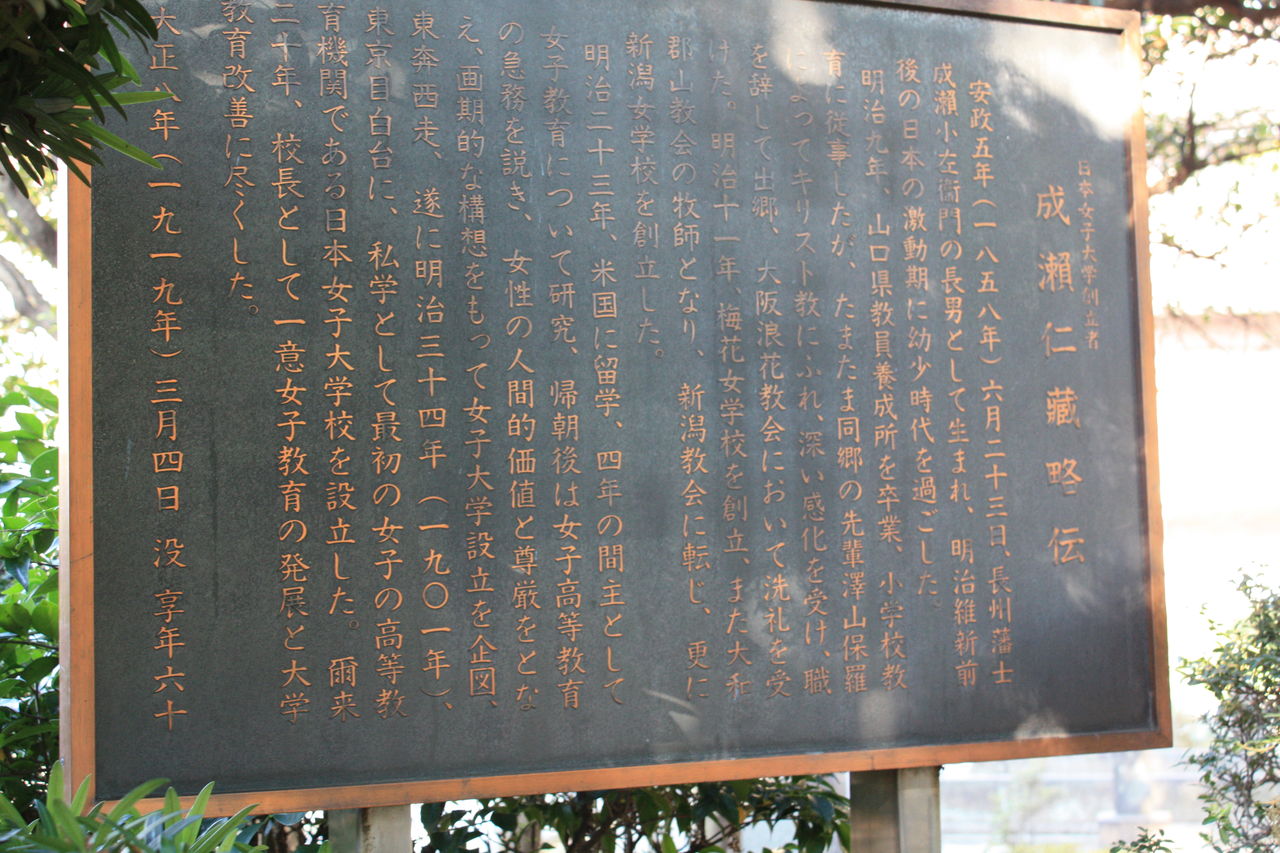 日本女子大学創立者
成瀬仁藏略伝
安政五年(一八五八年)六月二十三日、長州藩士
成瀬小左衞門の長男として生まれ、明治維新前
後の日本の激動期に幼少時代を過ごした。
明治九年、山口県教員養成所を卒業、小学校教
育に従事したが、たまたま同郷の先輩澤山保羅
によってキリスト教にふれ、深い感化を受け、職
を辞して出郷、大阪浪花教会において洗礼を受
けた。明治十一年、梅花女学校を創立、また大和
郡山教会の牧師となり、新潟教会に転じ、更に
新潟女学校を創立した。
明治二十三年、米国に留学、四年の間主として
女子教育について研究、帰朝後は女子高等教育
の急務を説き、女性の人間的価値と尊厳をとな
え、画期的な構想をもって女子大学設立を企図、
東奔西走、遂に明治三十四年(一九〇一年)、
東京目白台に、私学として最初の女子の高等教
育機関である日本女子大学校を設立した。爾来
二十年、校長として一意女子教育の発展と大学
教育改善に尽くした。
大正八年(一九一九年)三月四日没 享年六十